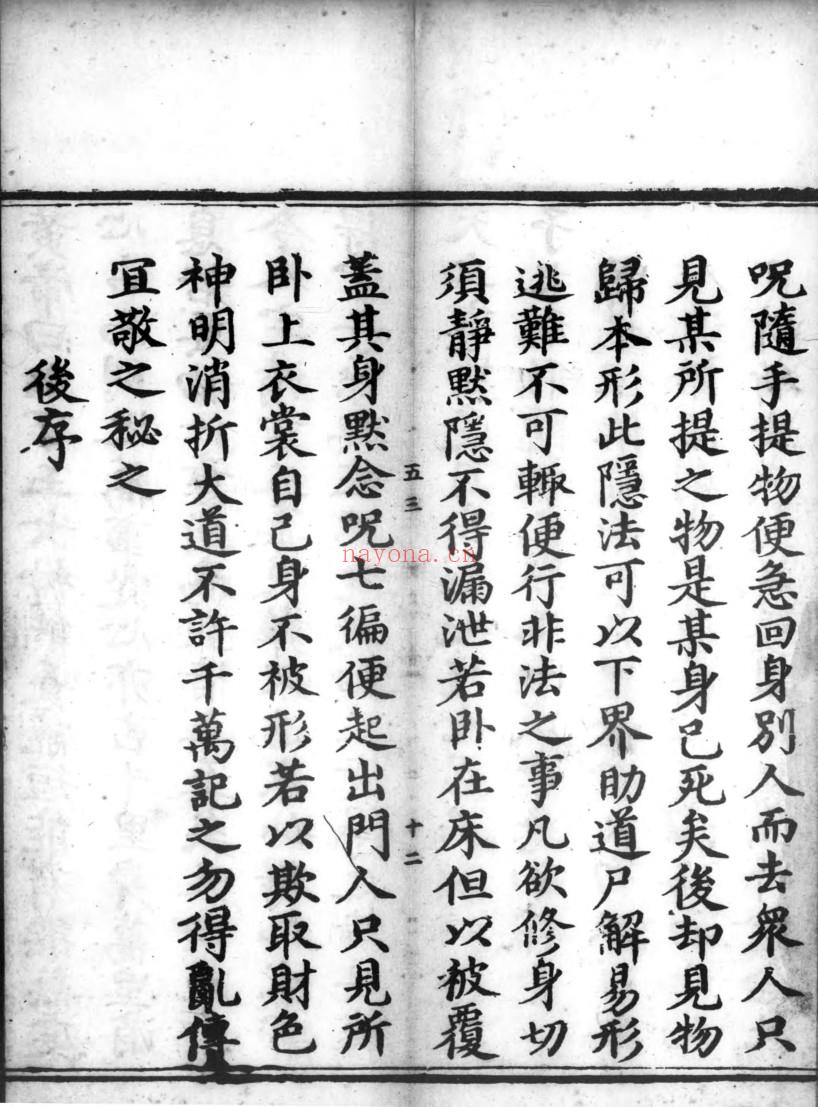 咒隨手提物便急回身別人而去衆人只
見某所提之物是某身已死矣後却見物
歸本形此隱法可以下界助道尸解易形
逃難不可輙便行非法之事凡欲修身切
須靜黙隱不得漏泄若卧在床但以被覆
五三 十二
蓋其身黙念咒七徧便起出門人只見所
卧上衣裳自己身不被形若以欺取財色
神明消折大道不許千萬記之勿得亂傳
冝敬之秘之
後序
nayona.cn